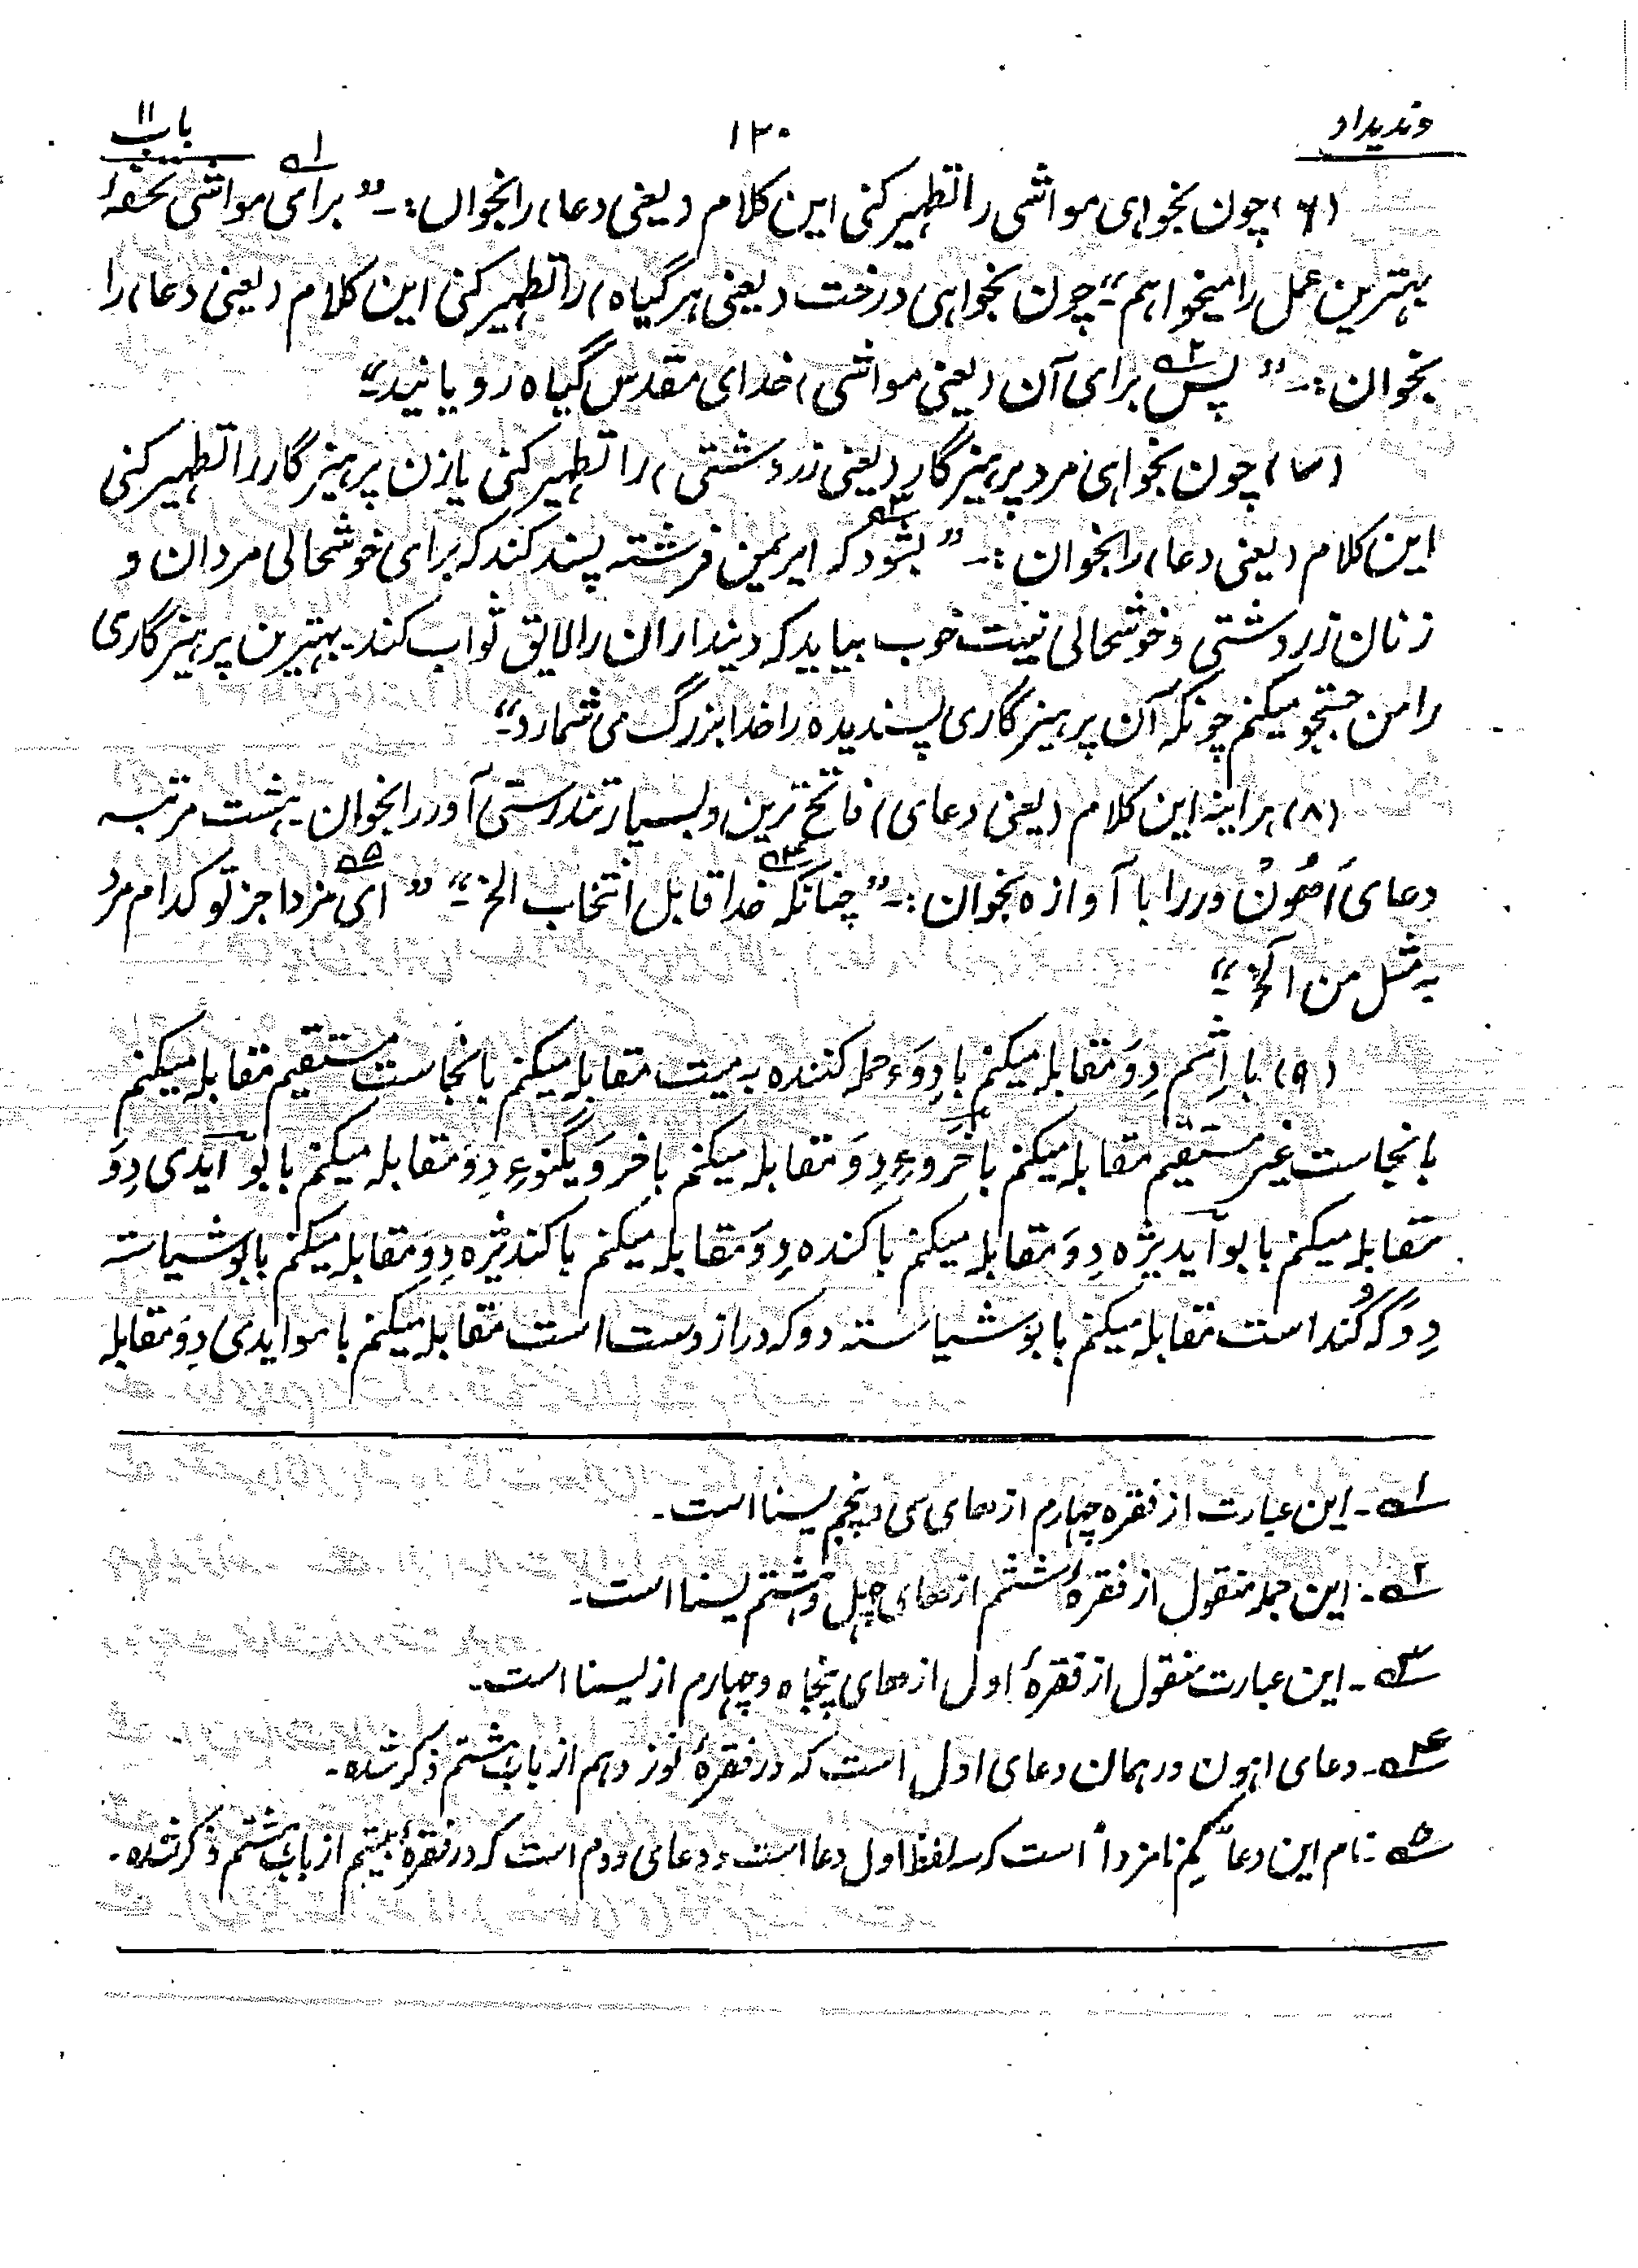 وندیداد
۱۲۰
باب ۱۱
(۶) چون بخواهی مواشی را تطهیر کنی این کلام (یعنی دعا) را بخوان:- ”برای۱؎ مواشی تحفهٔ
بهترین عمل را میخواهم“- چون بخواهی درخت (یعنی هر گیاه) را تطهیر کنی این کلام (یعنی دعا) را
بخوان:- ”پس۲؎ برای آن (یعنی مواشی) خدای مقدس گیاه رویانید“-
(۷) چون بخواهی مرد پرهیزگار (یعنی زردشتی) را تطهیر کنی یا زن پرهیزگار را تطهیر کنی
این کلام (یعنی دعا) را بخوان:- ”بشود۳؎ که ایریمن فرشته پسند کند که برای خوشحالی مردان و
زنان زردشتی و خوشحالی نیت خوب بیاید که دینداران را لایق ثواب کند- بهترین پرهیزگاری
را من جستجو میکنم چونکه آن پرهیزگاری پسندیده را خدا بزرگ می شمارد“-
(۸) هرآینه این کلام (یعنی دعای) فاتح ترین و بسیار تندرستی آور را بخوان- هشت مرتبه
دعای اَهُونُ ور را با آوازه بخوان:- ”چنانکه۴؎ خدا قابل انتخاب الخ“- ”ای۵؎ مزدا جز تو کدام مرد
به مثل من الخ“-
(۹) با اِشم دِوَ مقابله میکنم با دِوَء حمله کننده به میت مقابله میکنم با نجاست مستقیم مقابله میکنم
با نجاست غیر مستقیم مقابله میکنم با خَروءِ دِوَ مقابله میکنم با خروَیگنوءِ دِوَ مقابله میکنم با بوآیدی دِوَ
مقابله میکنم با بوآیدیژه دِوَ مقابله میکنم با کنده دِوَ مقابله میکنم با کندیژه دِوَ مقابله میکنم با بوشیاسته
دِوَ که کُند است مقابله میکنم با بوشیاسته دو که دراز دست است مقابله میکنم با موایدی دِوَ مقابله
۱؎- این عبارت از فقره چهارم از های سی و پنجم یسنا است-
۲؎- این جمله منقول از فقرهٔ ششم از های چهل و هشتم یسنا است-
۳؎- این عبارت منقول از فقرهٔ اول از های پنجاه و چهارم از یسنا است-
۴؎- دعای اهون ور همان دعای اول است که در فقرهٔ نوزدهم از باب هشتم ذکر شده-
۵؎- نام این دعا ”کِم نامزدا“ است که سه لفظ اول دعا است و دعای دوم است که در فقرهٔ بیستم از باب هشتم ذکر شده-